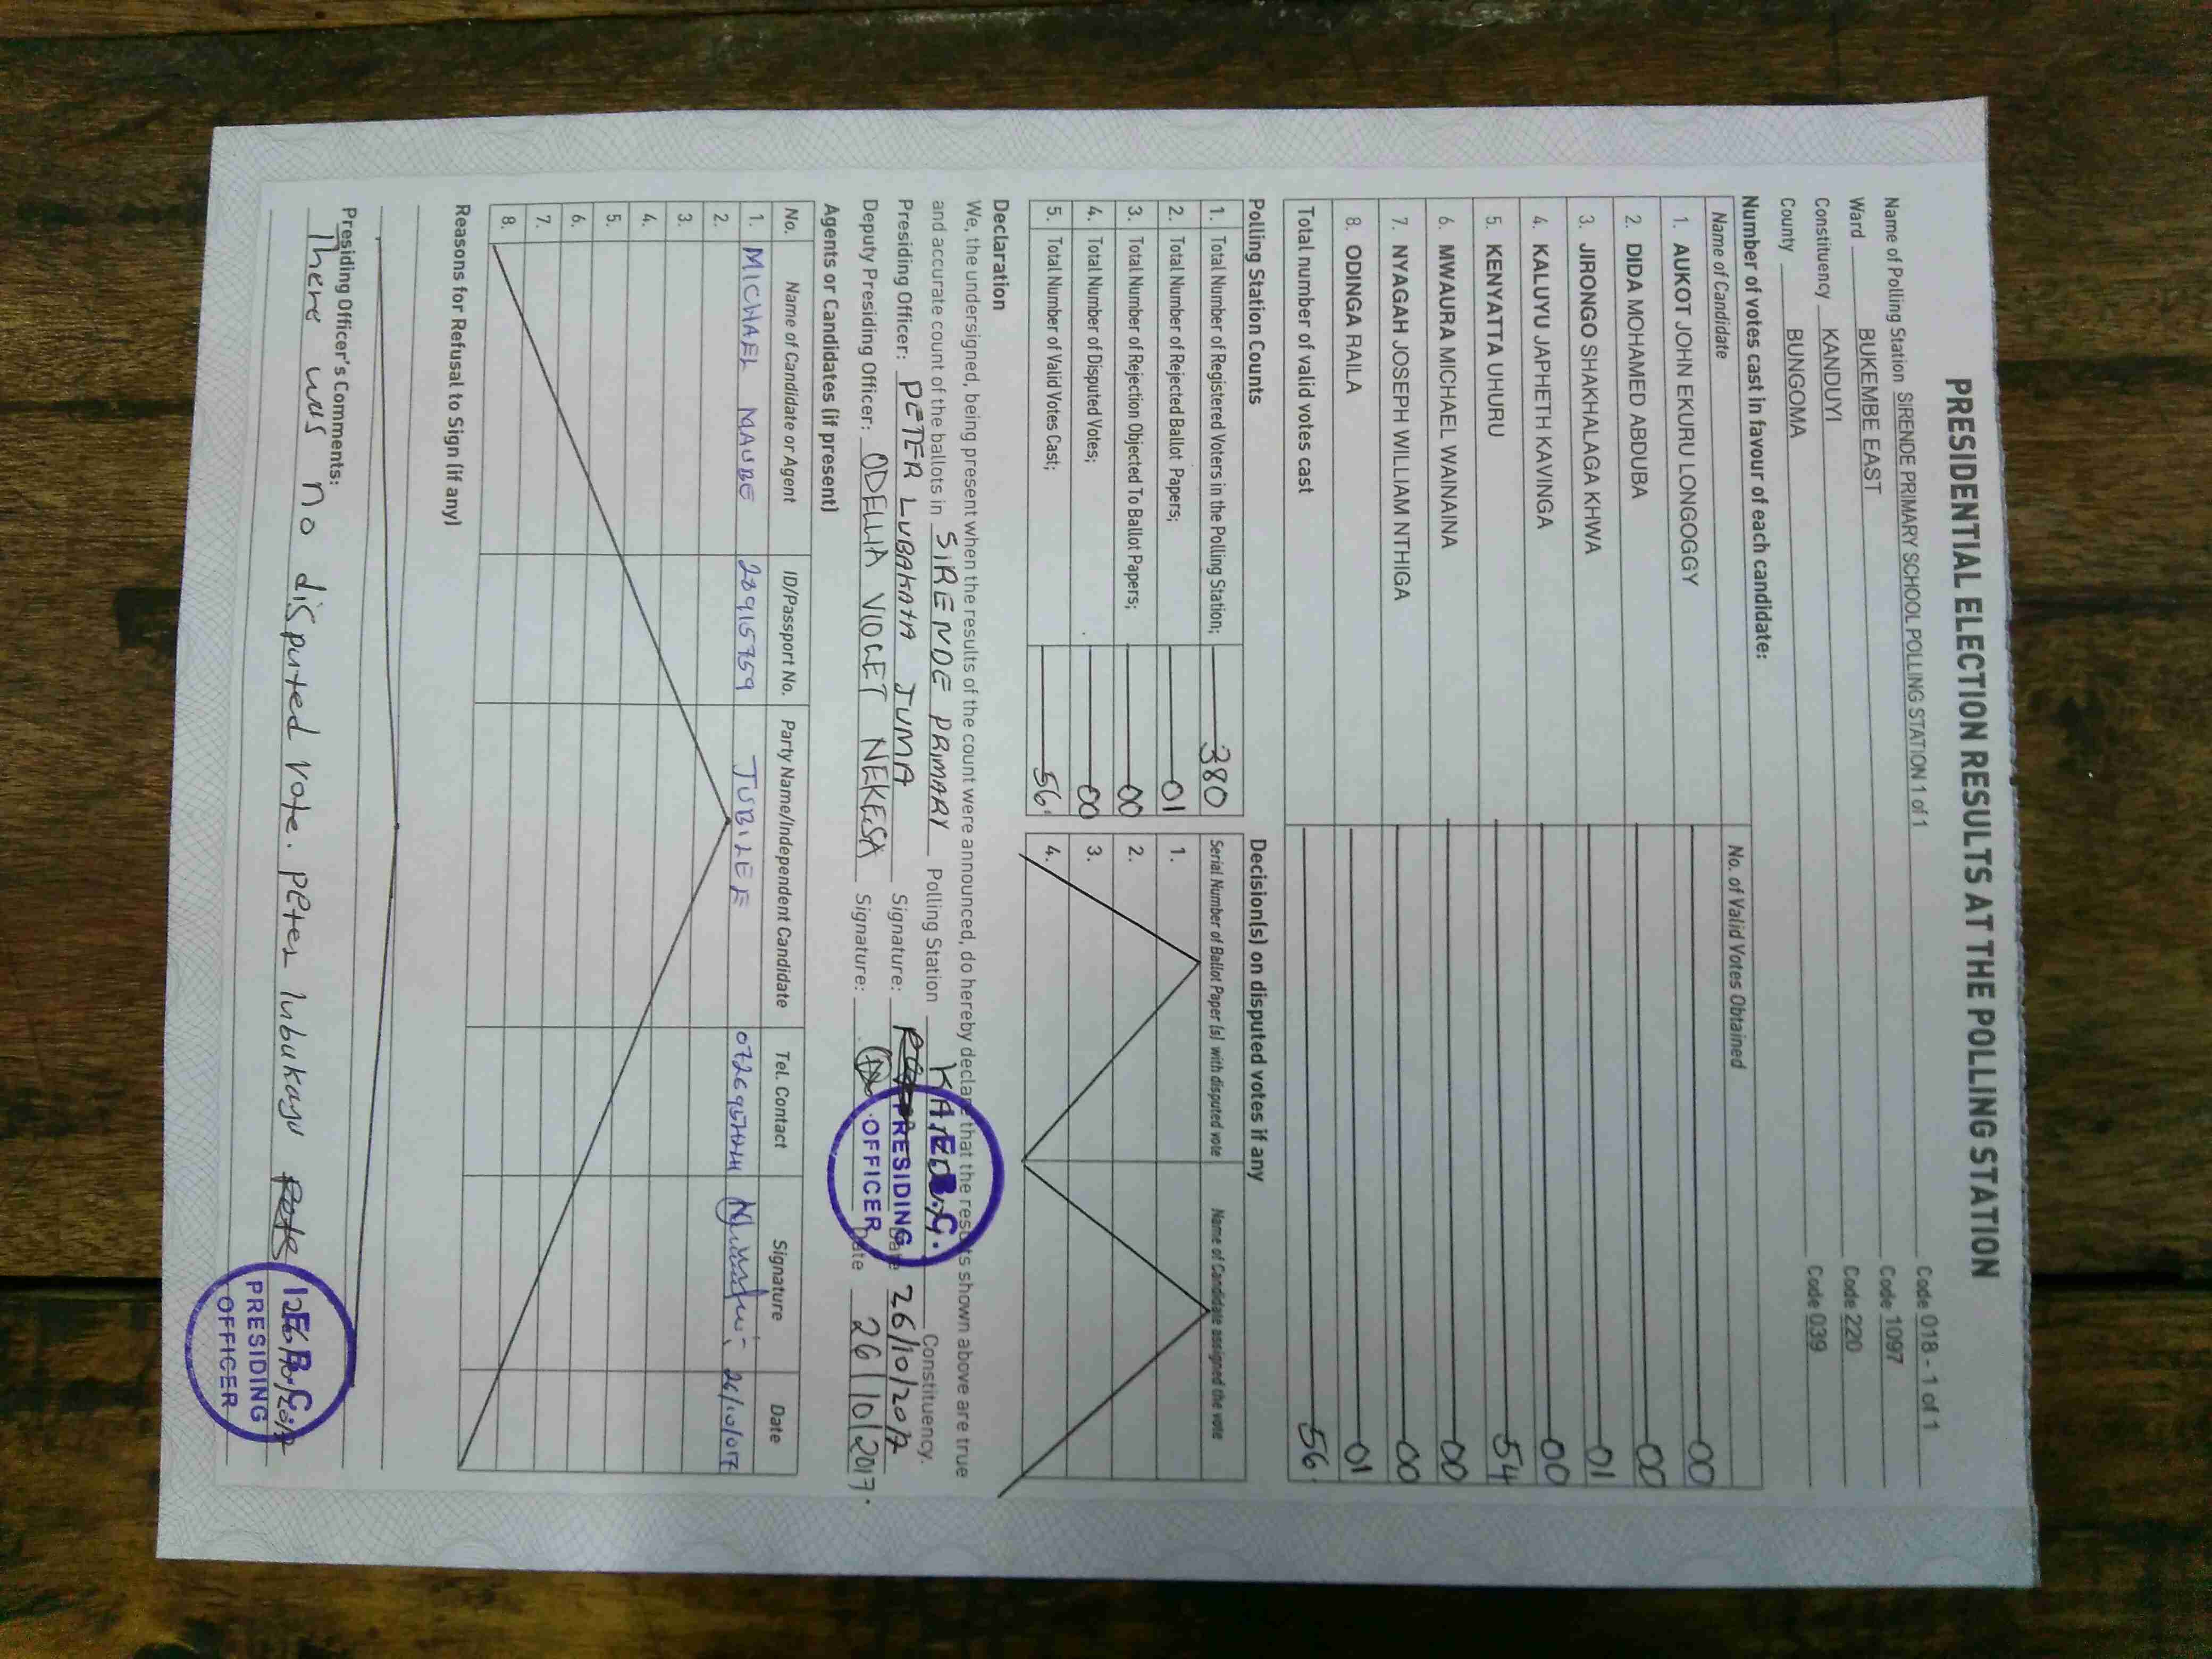 PRESIDENTIAL ELECTION RESULTS AT THE POLLING STATION
Name of Polling Station SIRENDE PRIMARY SCHOOL POLLING STATION 1 of 1 Code 018 - 1 of 1
Ward BUKEMBE EAST Code 1097
Constituency KANDUYI Code 220
County BUNGOMA Code 039
Number of votes cast in favour of each candidate:
Name of Candidate No. of Valid Votes Obtained
1. AUKOT JOHN EKURU LONGOGGY 00
2. DIDA MOHAMED ABDUBA 00
3. JIRONGO SHAKHALAGA KHWA 01
4. KALUYU JAPHETH KAVINGA 00
5. KENYATTA UHURU 54
6. MWAURA MICHAEL WAINAINA 00
7. NYAGAH JOSEPH WILLIAM NTHIGA 00
8. ODINGA RAILA 01
Total number of valid votes cast 56
Polling Station Counts Decision(s) on disputed votes if any
1. Total Number of Registered Voters in the Polling Station; 380 Serial Number of Ballot Paper (s) with disputed vote Name of Candidate assigned the vote
2. Total Number of Rejected Ballot Papers; 01 1.
3. Total Number of Rejection Objected To Ballot Papers; 00 2.
4. Total Number of Disputed Votes; 00 3.
5. Total Number of Valid Votes Cast; 56 4.
Declaration
We, the undersigned, being present when the results of the count were announced, do hereby declare that the results shown above are true
and accurate count of the ballots in SIRENDE PRIMARY Polling Station Constituency.
Presiding Officer: PETER LUBAKAYA JUMA Signature: Date 26/10/2017
Deputy Presiding Officer: ODELIA VIOLET NEKESA Signature: Date 26/10/2017.
I.E.B.C.
PRESIDING
OFFICER
Agents or Candidates (if present)
No. Name of Candidate or Agent ID/Passport No. Party Name/Independent Candidate Tel. Contact Signature Date
1. MICHAEL MAUBE 28915759 JUBILEE 26/10/017
2.
3.
4.
5.
6.
7.
8.
Reasons for Refusal to Sign (if any)
Presiding Officer's Comments:
There was no disputed vote. Peter lubukayu
I.E.B.C.
PRESIDING
OFFICER